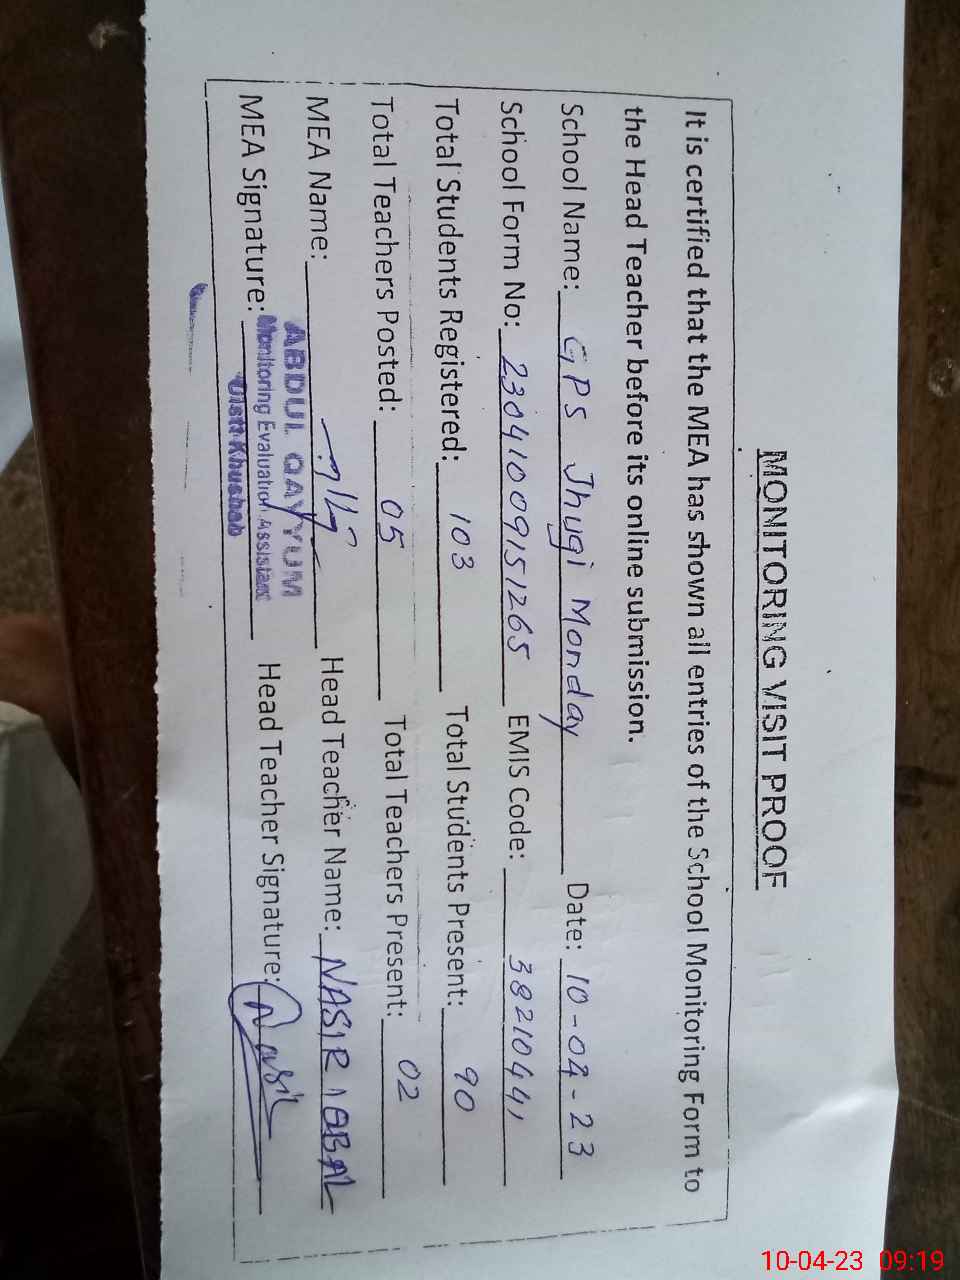 MONITORING VISIT PROOF
It is certified that the MEA has shown all entries of the School Monitoring Form to
the Head Teacher before its online submission.
School Name: GPS Jhugi Monday Date: 10-04-23
School Form No: 23041009151265 EMIS Code: 38210441
Total Students Registered: 103 Total Students Present: 90
Total Teachers Posted: 05 Total Teachers Present: 02
MEA Name: Head Teacher Name: NASIR IQBAL
ABDUL QAYYUM
MEA Signature: Head Teacher Signature: Nasir
Monitoring Evaluation Assistant
Distt Khushab
10-04-23 09:19